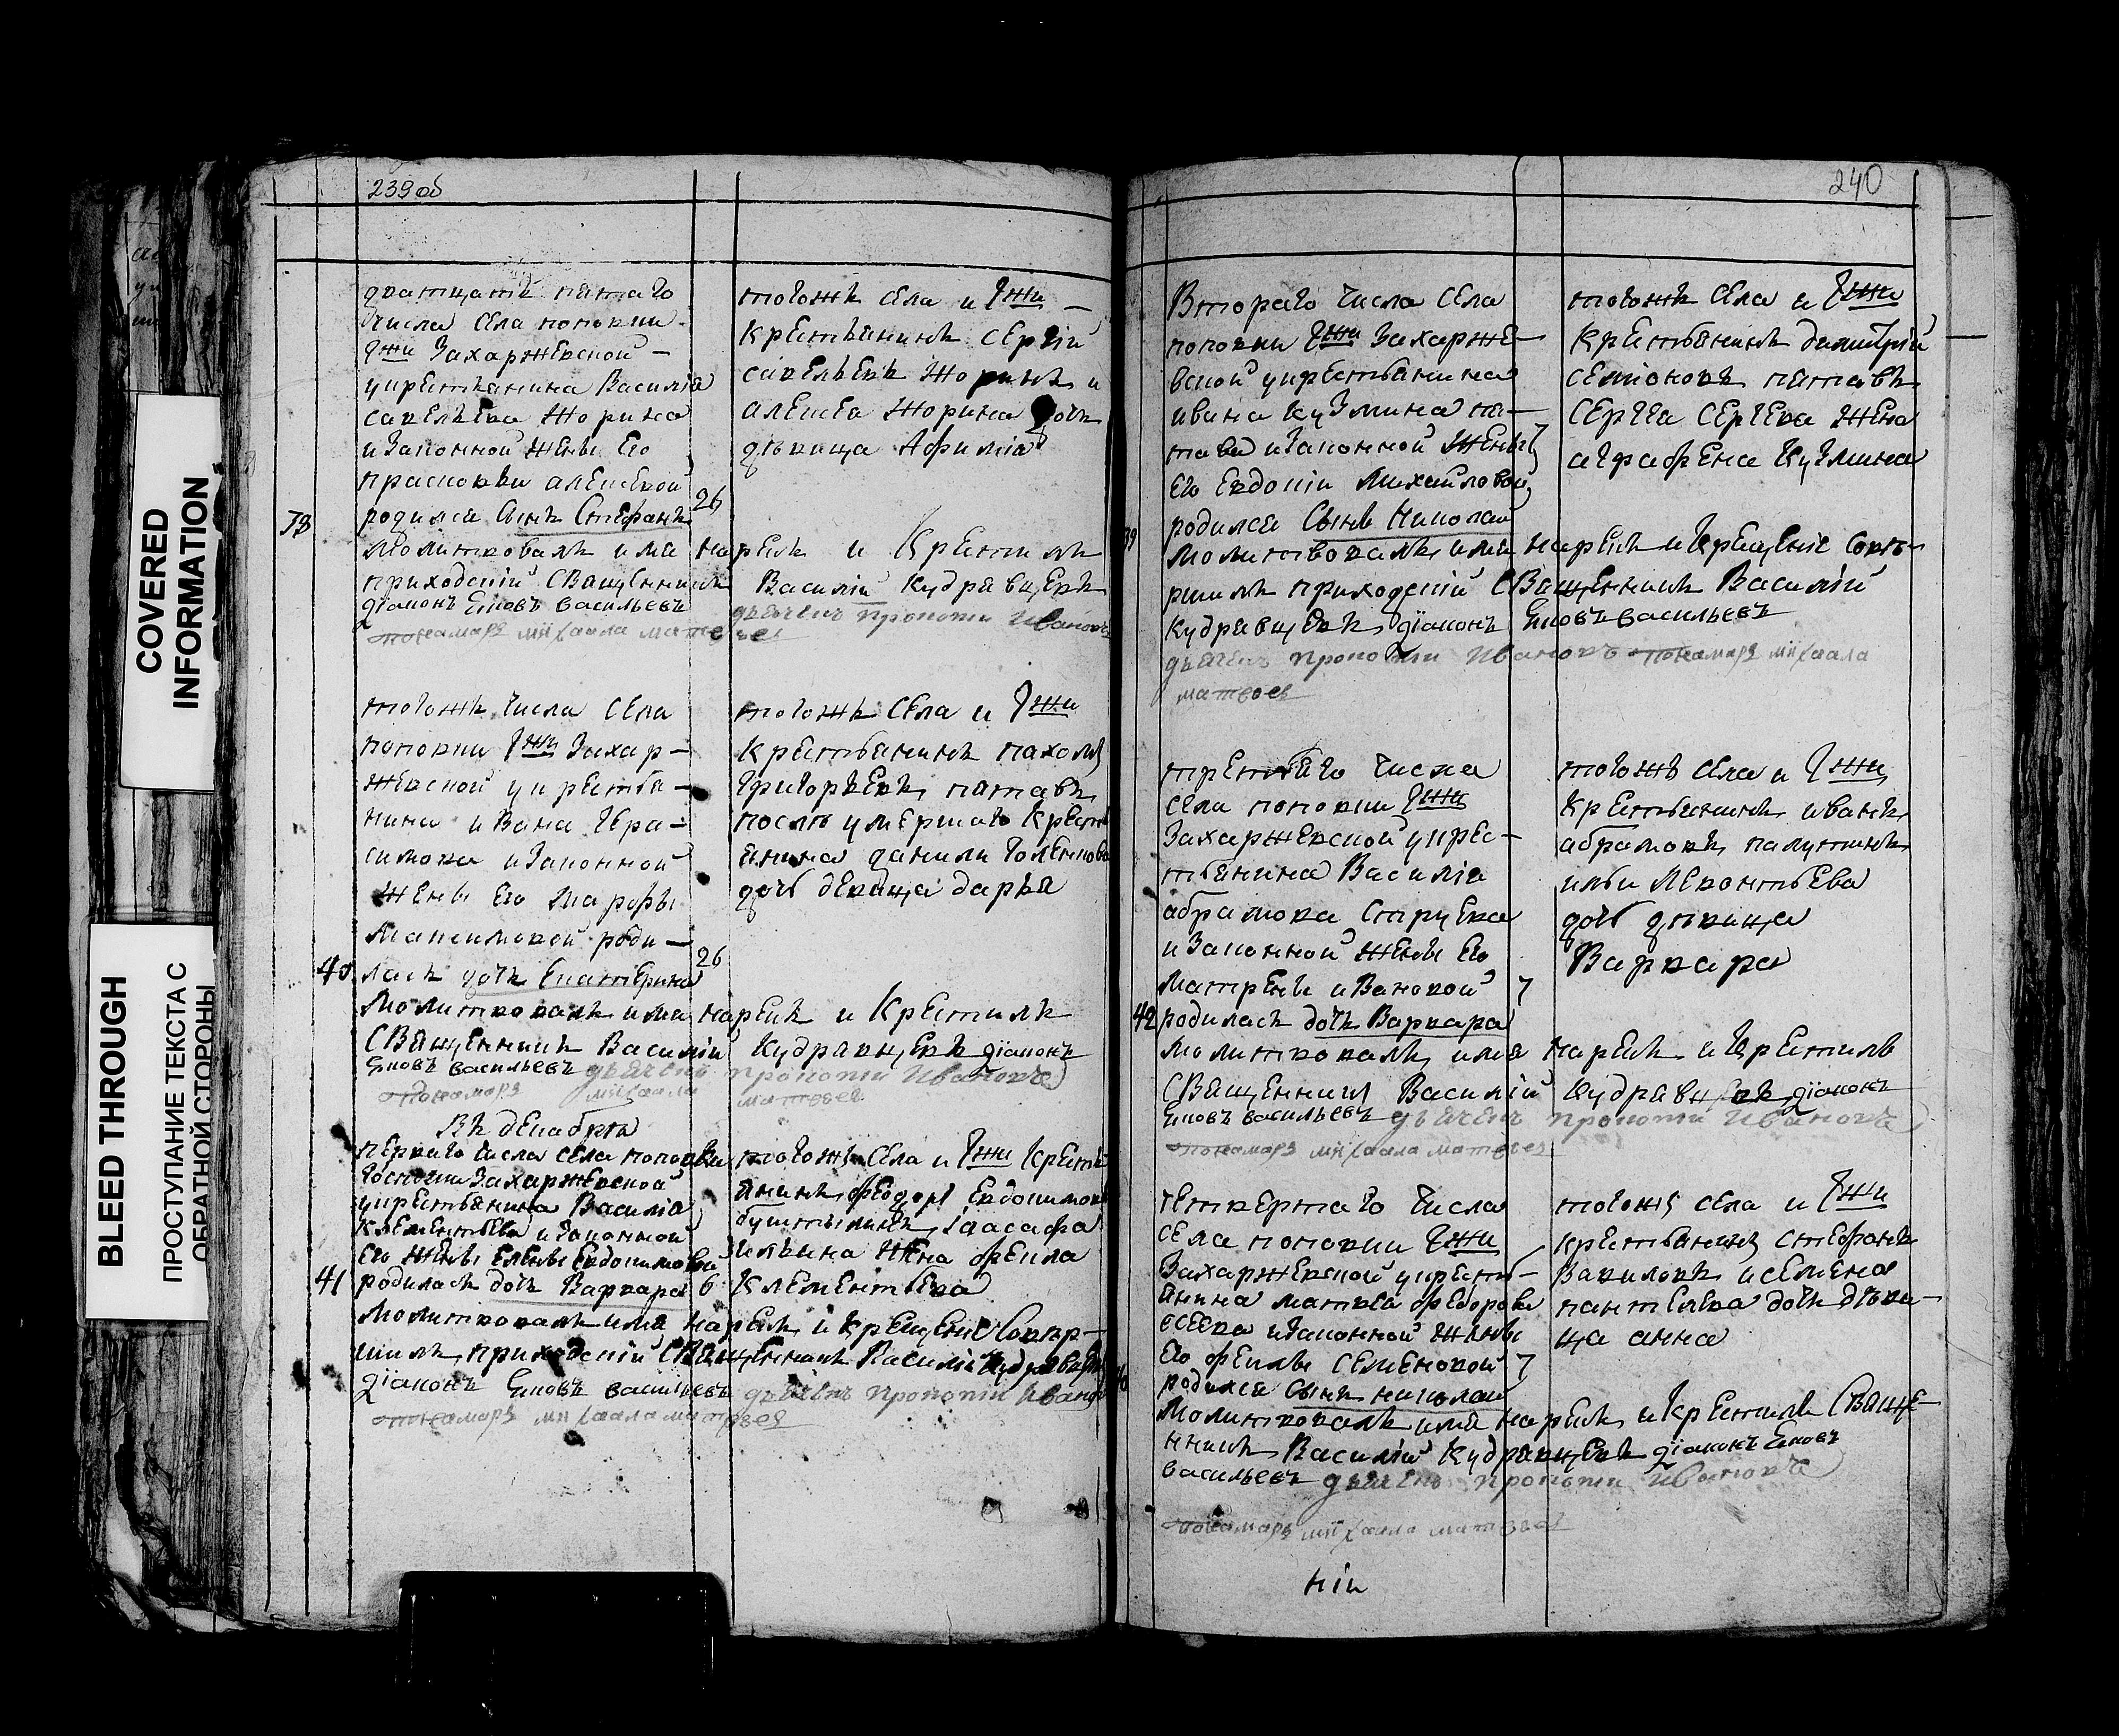 COVERED
INFORMATION
BLEED THROUGH
ПРОСТУПАНИЕ ТЕКСТА С
ОБРАТНОЙ СТОРОНЫ
239 об
дватцать пятаго
числа села поповки
гжи Захаржевской
у крестьянина Василїа
савельева Жорина
и Законной жены Его
прасковьи алексевой
38 родился Сынъ Стефанъ 26
тогожъ села и гжи
Крестьянинъ сергїй
савельевъ Жоринъ и
алексея Жорина дочь
дѣвица Афимїа
Молитвовалъ имя нарекъ и Крестилъ
приходскїй Священникъ Василїй Кудрявцевъ
дїаконъ Яковъ васильевъ дьячекъ прокопїй Ивановъ
пономарь михаила матвеев
тогожъ числа села
поповки гжи Захар-
жевской у крестья-
нина ивана Гера-
симова и Законной
жены Его Марфы
Максимовой роди-
40 лась дочь Екатерина 26
тогожъ села и гжи
Крестьянинъ пахомъ
Григорьевъ
послѣ умершаго Крестья
янина данилы
дочь девица дарья
Молитвовалъ имя нарекъ и Крестилъ
Священникъ Василїй Кудрявцевъ дїаконъ
Яковъ васильевъ дьячекъ прокопїй Ивановъ
пономарь михаила матвеев
Въ декабрѣ
перваго числа села поповки
Госпожи Захаржевской
у крестьянина Василїа
Клементьева и Законной
Его жены Елены Евдокимовой
41 родилась дочь Варвара 6
тогожъ села и гжи Кресть
янинъ феодоръ Евдокимовъ
Іоасафа
жена фекла
Клементьева
Молитвовалъ имя нарекъ и Крещенїе Совер-
шилъ приходскїй Священникъ Василїй Кудрявцевъ
дїаконъ Яковъ васильевъ дьячекъ прокопїй Ивановъ
пономарь михаила матвеев
240
Втораго числа села
поповки гжи Захарже-
вской у крестьянина
ивана Кузмина
и Законной жены
Его Евдокїи Михайловой
39 родился Сынъ Николай
тогожъ села и гжи
Крестьянинъ димитрїй
семїоновъ
сергея сергева жена
аграфена Кузмина
Молитвовалъ имя нарекъ и Крещенїе совѣ-
ршилъ приходскїй Священникъ Василїй
Кудрявцевъ дїаконъ Яковъ васильевъ
дьячекъ прокопїй Ивановъ пономарь михаила
матвеев
третьяго числа
села поповки гжи
Захаржевской у крес-
тьянина Василїа
абрамова
и Законной жены Его
Матрены ивановой 7
42 родилась дочь Варвара
тогожъ села и гжи
Крестьянинъ иванъ
абрамовъ
ильи Леонтьева
дочь дѣвица
Варвара
Молитвовалъ имя нарекъ и Крестилъ
Священникъ Василїй Кудрявцевъ дїаконъ
Яковъ васильевъ дьячекъ прокопїй Ивановъ
пономарь михаила матвеев
четвертаго числа
села поповки гжи
Захаржевской у кресть-
янина матвея федорова
и Законной жены
Его феклы семеновой 7
родился Сынъ николай
тогожъ села и гжи
крестьянинъ стефанъ
и семена
пантелева дочь дѣви-
ца анна
Молитвовалъ имя нарекъ и Крестилъ Свяще-
нникъ Василїй Кудрявцевъ дїаконъ Яковъ
васильевъ дьячекъ прокопїй Ивановъ
пономарь михаила матвеев